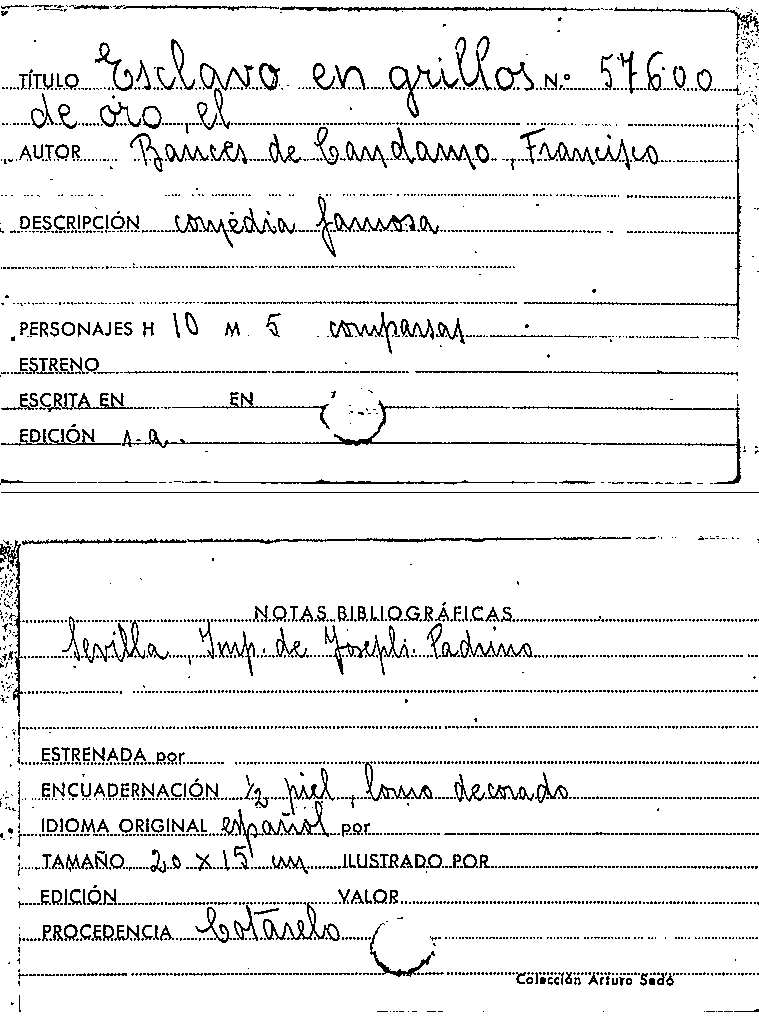 TÍTULO Esclavo en grillos N.º 57600
de oro, el
AUTOR Bances de Candamo, Francisco
DESCRIPCIÓN comédia famosa
PERSONAJES H 10 M 5 comparsas
ESTRENO
ESCRITA EN EN
EDICIÓN s.a.
NOTAS BIBLIOGRÁFICAS
Sevilla, Imp. de Joseph Padrino
ESTRENADA por
ENCUADERNACIÓN ½ piel, lomo decorado
IDIOMA ORIGINAL español por
TAMAÑO 20 x 15 cm ILUSTRADO POR
EDICIÓN VALOR
PROCEDENCIA Cotarelo
Colección Arturo Sedó